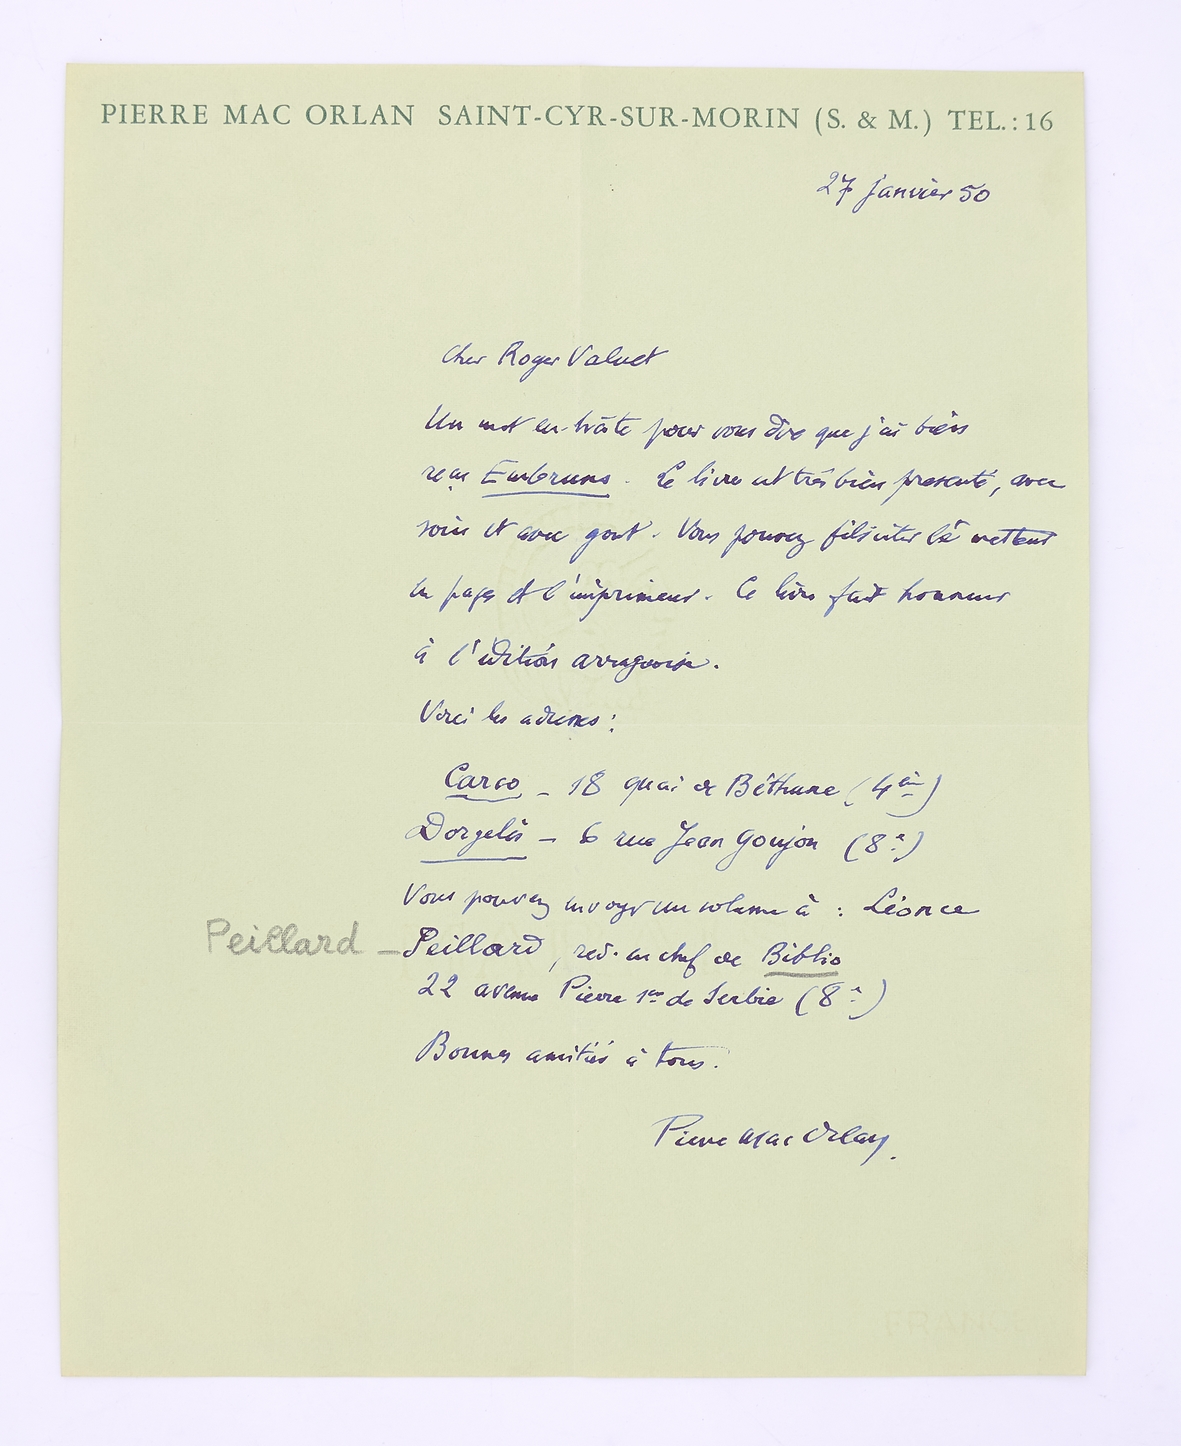 PIERRE MAC ORLAN SAINT-CYR-SUR-MORIN (S. & M.) TEL.: 16
27 janvier 50
Cher Roger Valuet
Un mot en hâte pour vous dire que j'ai bien
reçu Embruns. Le livre est très bien présenté, avec
soin et avec gout. Vous pouvez féliciter le metteur
en pages et l'imprimeur. Ce livre fait honneur
à l'édition
Voici les adresses :
Carco - 18 quai de Béthune (4ème)
Dorgelès - 6 rue Jean Goujon (8e)
Vous pouvez envoyer un volume à : Léonce
Peillard - Peillard, red. en chef de Biblio
22 avenue Pierre 1er de Serbie (8e)
Bonnes amitiés à tous.
Pierre Mac Orlan.